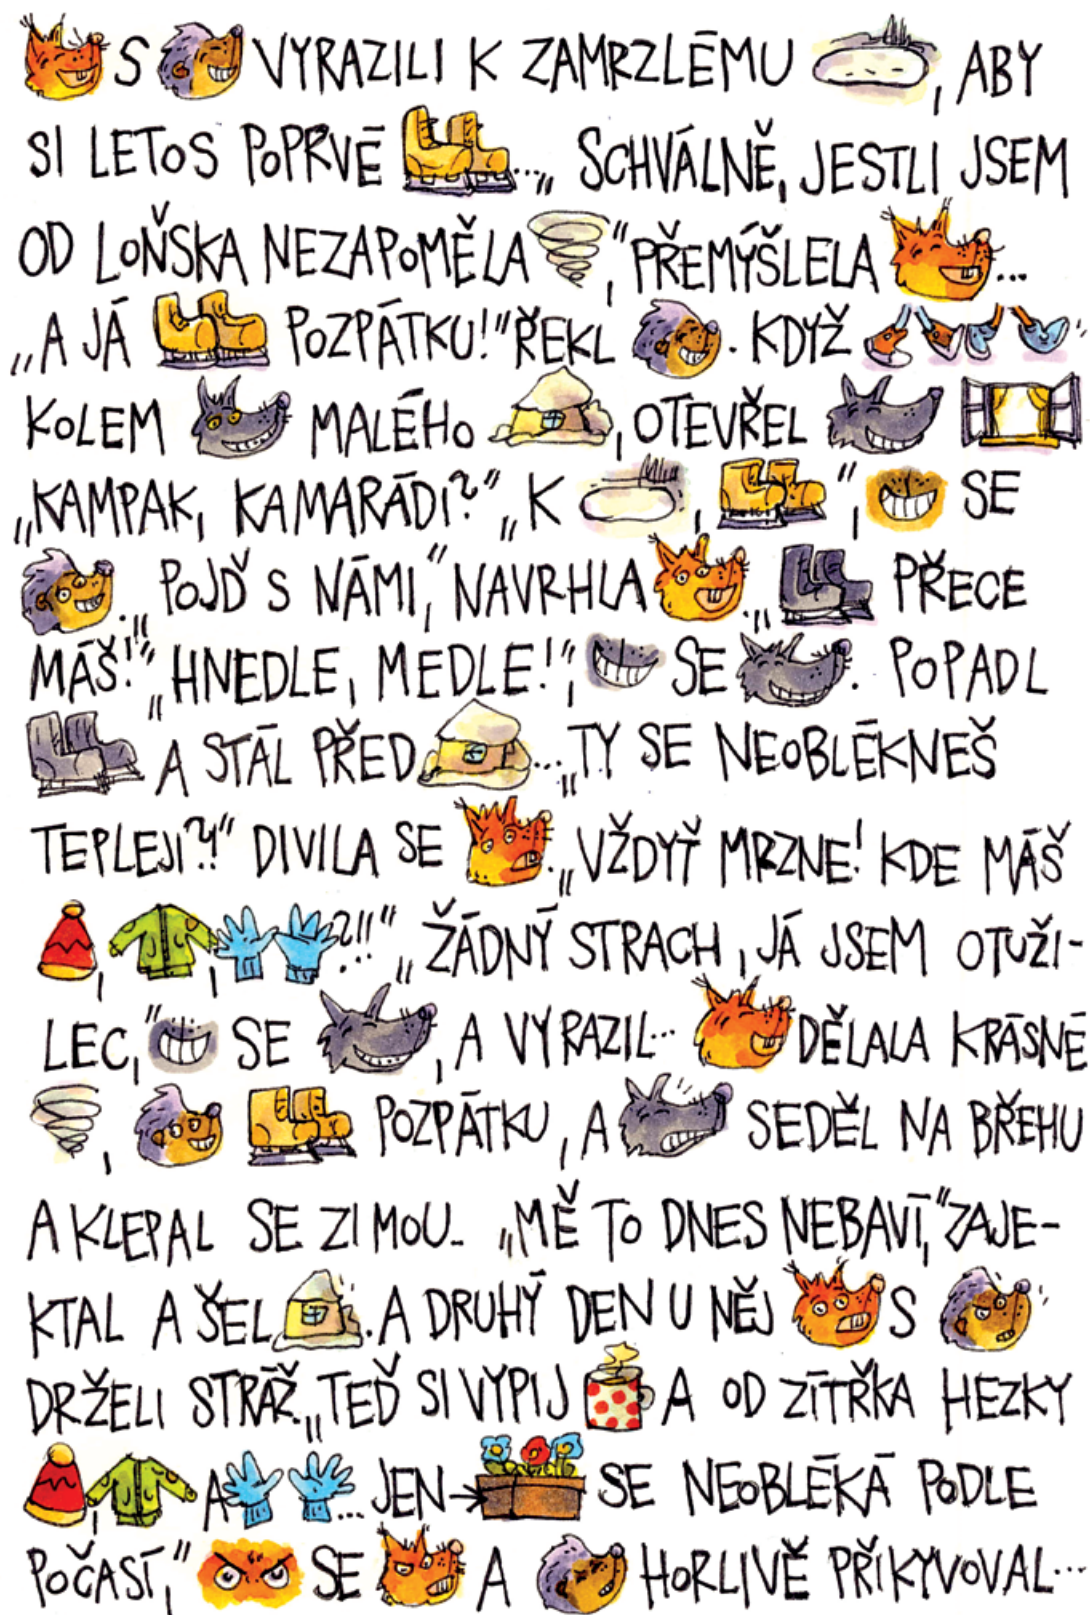 S VYRAZILI K ZAMRZLÉMU , ABY
SI LETOS POPRVÉ ... „SCHVÁLNĚ, JESTLI JSEM
OD LOŇSKA NEZAPOMĚLA ,“ PŘEMÝŠLELA ...
„A JÁ POZPÁTKU!“ ŘEKL . KDYŽ
KOLEM MALÉHO , OTEVŘEL
„KAMPAK, KAMARÁDI?“ „K , “, SE
. „POJĎ S NÁMI,“ NAVRHLA . „ PŘECE
MÁŠ!“ „HNEDLE, MEDLE!“, SE . POPADL
A STÁL PŘED ... „TY SE NEOBLÉKNEŠ
TEPLEJI?!“ DIVILA SE . „VŽDYŤ MRZNE! KDE MÁŠ
, , ?!!“ „ŽÁDNÝ STRACH, JÁ JSEM OTUŽI-
LEC,“ SE , A VYRAZIL... DĚLALA KRÁSNÉ
, POZPÁTKU, A SEDĚL NA BŘEHU
A KLEPAL SE ZIMOU.. „MĚ TO DNES NEBAVÍ,“ ZAJE-
KTAL A ŠEL . A DRUHÝ DEN U NĚJ S
DRŽELI STRÁŽ. „TEĎ SI VYPIJ A OD ZÍTŘKA HEZKY
, A ... JEN SE NEOBLÉKÁ PODLE
POČASÍ,“ SE A HORLIVĚ PŘIKYVOVAL...